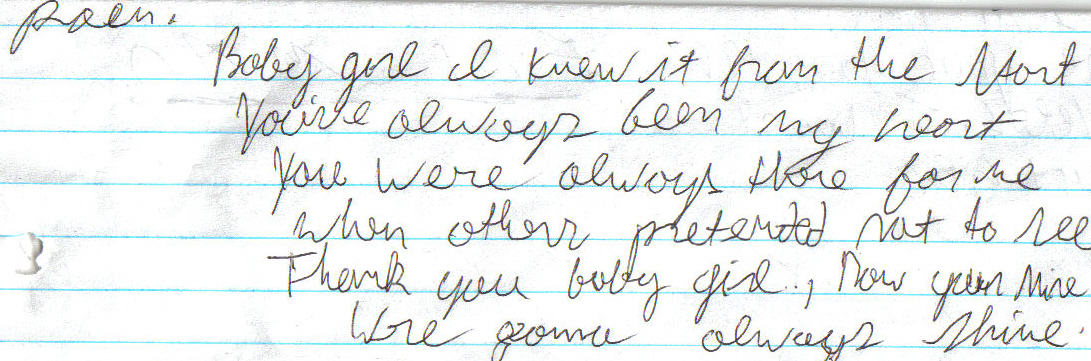 poem.
Baby girl I knew it from the start
You've always been my heart
You were always there for me
when others pretended not to see
Thank you baby girl.., Now your Mine
We're gonna always shine.